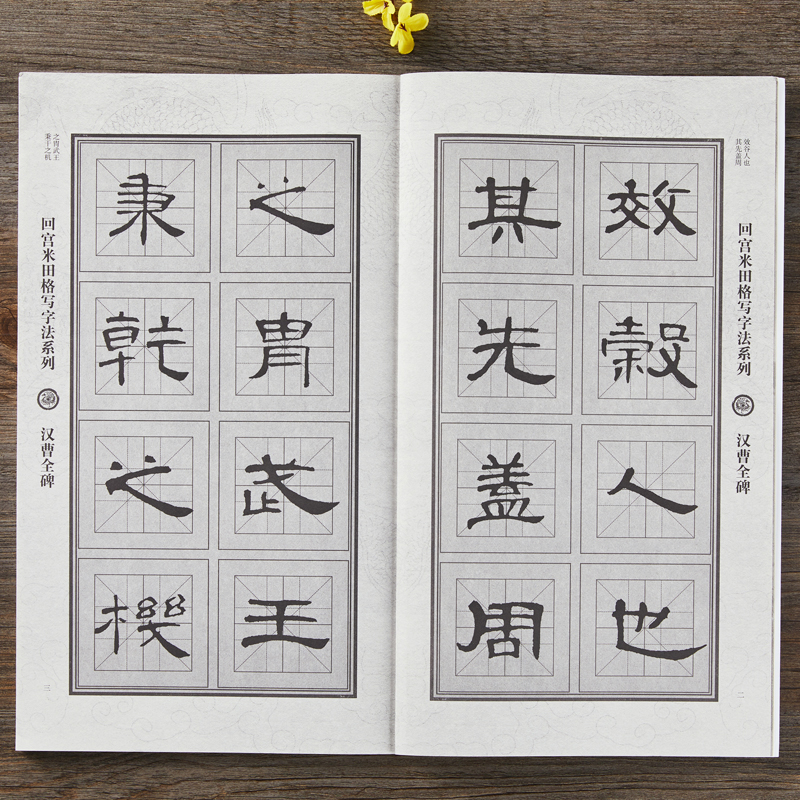 效谷人也
其先盖周
回宫米田格写字法系列
汉曹全碑
效穀人也
其先蓋周
二
之胄武王
秉干之机
之胄武王
秉乾之機
回宫米田格写字法系列
汉曹全碑
三